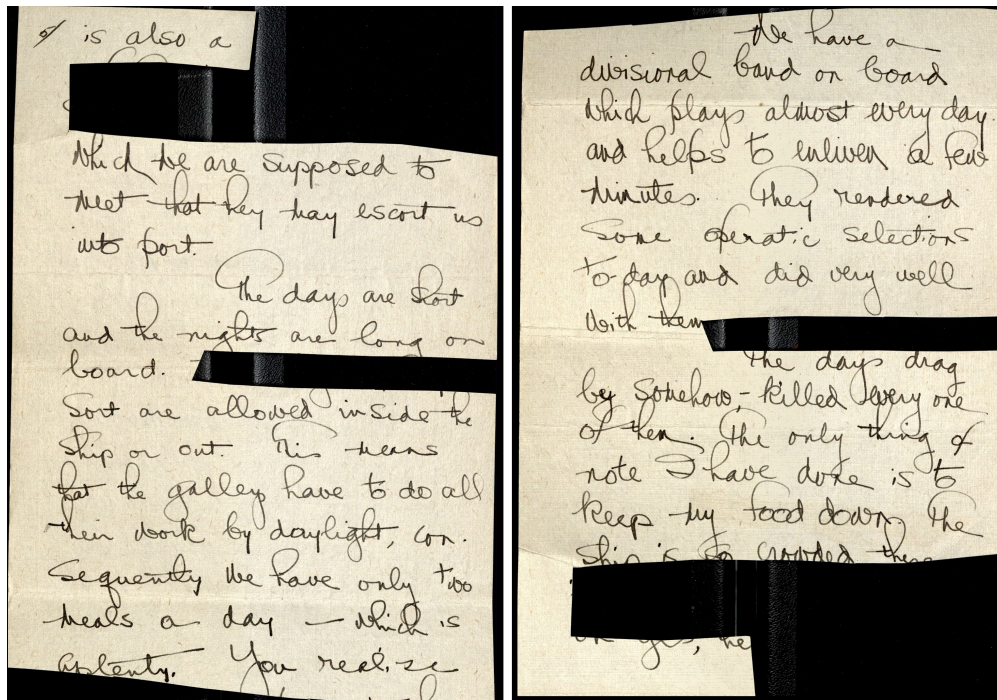 of is also a
which we are supposed to
meet that they may escort us
into port.
The days are short
and the nights are long on
board.
Sort are allowed inside the
ship or out. This means
that the galley have to do all
their work by daylight, con-
sequently we have only two
meals a day – which is
aplenty. You realize
We have a
divisional band on board
which plays almost every day
and helps to enliven a few
minutes. They rendered
some operatic selections
to-day and did very well
with them
The days drag
by somehow,- killed every one
of them. The only thing of
note I have done is to
keep my food down. The
ship is so crowded there
oh yes, he